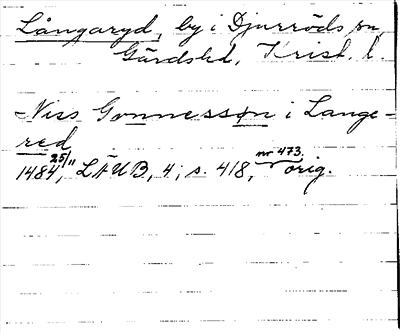 Långaryd, by i Djurröds sn,
Gärds hd, Krist. l.
Niss Gunnesson i Lange=
red
1484 25/11, LÄUB, 4, s. 418, nr 473. orig.